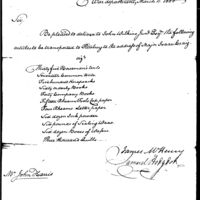 War department, March 11, 1800
Sir
Be pleased to deliver to John Wilkins Junr Esqr the following
articles to be transported to Pittsburg to the address of Major Isaac Craig
vizt
Thirty five Horsemans tents
Seventy Common tents
Five hundred Knapsacks
Sixty orderly Books
Forty Company Books
Fifteen Reams Foolscap paper
Four Reams Letter paper
Six dozen Ink powder
Six pieces of Tape
Six dozen Boxes of Wafers
Three thousand Quills
James McHenry
Samuel Hodgdon
Mr John Harris